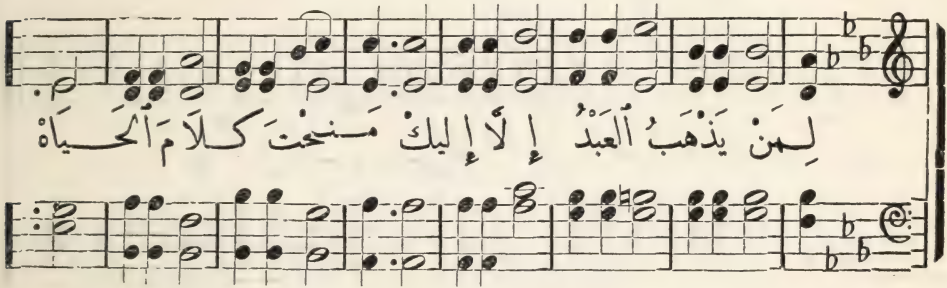 لِمَنْ يَذْهَبُ ٱلعَبْدُ إِلَّا إِليكْ مَنحْتَ كلَامَ ٱلحَيَاةْ